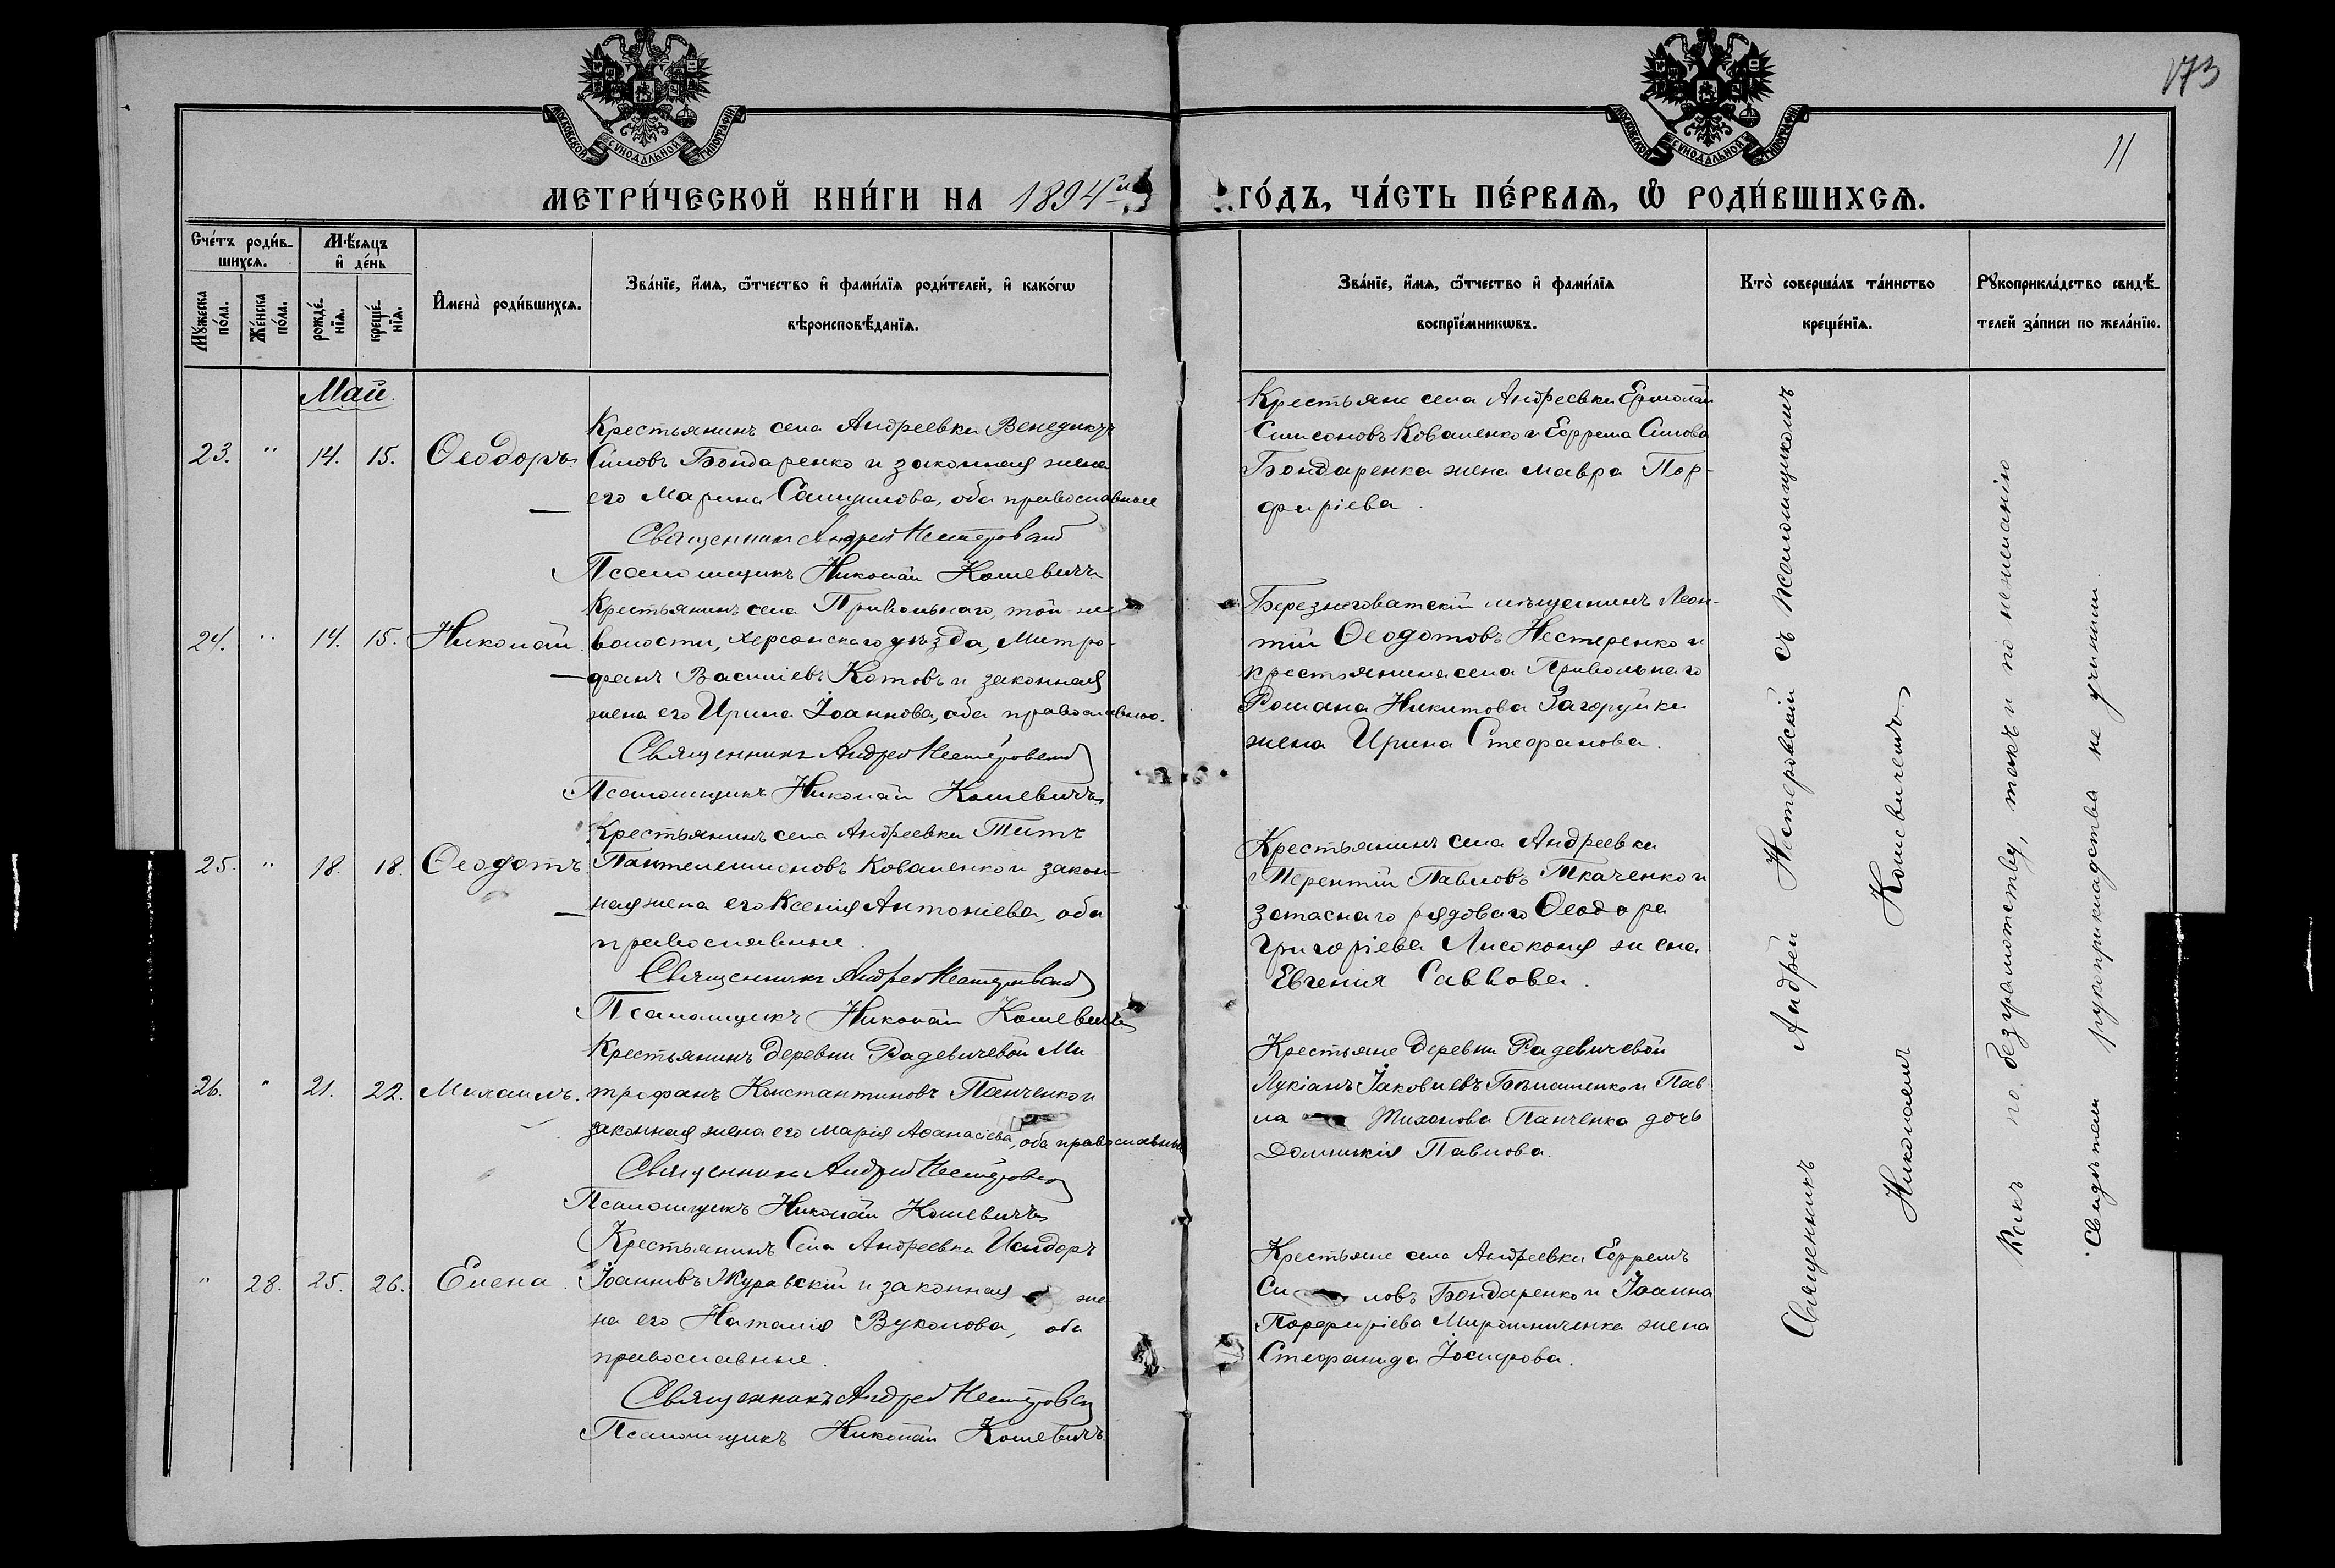 173
11
МОСКОВСКОЙ СѴНОДАЛЬНОЙ ТИПОГРАФІИ
МОСКОВСКОЙ СѴНОДАЛЬНОЙ ТИПОГРАФІИ
МЕТРИ́ЧЕСКОЙ КНИ́ГИ НА 1894й
ГО́ДЪ, ЧА́СТЬ ПЕ́РВАѦ, Ѡ҃ РОДИ́ВШИХСѦ.
Сче́тъ роди́в-
шихсѧ.
Мꙋ́жеска по́ла.
Же́нска по́ла.
Мѣ́сѧцъ
и҆ де́нь
рожде́-
нїѧ.
креще́-
нїѧ.
И҆мена̀ роди́вшихсѧ.
Зва́нїе, и҆́мѧ, ѻ҆́тчество и҆ фами́лїѧ роди́телей, и҆ како́гѡ
вѣроисповѣ́данїѧ.
Зва́нїе, и҆́мѧ, ѻ҆́тчество и҆ фами́лїѧ
воспрїе́мникѡвъ.
Кто̀ соверша́лъ та́инство
креще́нїѧ.
Рꙋкоприкла́дство свидѣ́-
телей за́писи по жела́нїю.
Май.
23. " 14. 15. Ѳеодоръ.
Крестьянинъ села Андреевки Венедиктъ
Силовъ Бондаренко и законная жена
его Марина Самуилова, оба православные
Священникъ Андрей Нестеровскій
Псаломщикъ Николай Кошевичъ
Крестьяне села Андреевки Ермолай
Симеоновъ Коваленко и Ефрема Силова
Бондаренка жена Мавра Пор-
фиріева.
24. " 14. 15. Николай.
Крестьянинъ села Привольнаго, той же
волости, Херсонскаго уѣзда, Митро-
фанъ Василіевъ Котовъ и законная
жена его Ирина Іоаннова, оба православные.
Священникъ Андрей Нестеровскій
Псаломщикъ Николай Кошевичъ
Березнеговатскій мѣщанинъ Леон-
тій Ѳеодотовъ Нестеренко и
крестьянина села Привольнаго
Романа Никитова Загоруйки
жена Ирина Стефанова.
25. " 18. 18. Ѳеодотъ
Крестьянинъ села Андреевки Титъ
Пантелеимоновъ Коваленко и закон-
ная жена его Ксенія Антоніева, оба
православные.
Священникъ Андрей Нестеровскій
Псаломщикъ Николай Кошевичъ
Крестьянинъ села Андреевки
Терентій Павловъ Ткаченко и
запаснаго рядоваго Ѳеодора
Григоріева Лисоконя жена
Евгенія Саввова.
26. " 21. 22. Михаилъ.
Крестьянинъ деревни Радевичевой Ми-
трофанъ Константиновъ Панченко и
законная жена его Марія Аѳанасіева, оба православные
Священникъ Андрей Нестеровскій
Псаломщикъ Николай Кошевичъ
Крестьяне деревни Радевичевой
Лукіанъ Іаковлевъ и Пав
ла Тихонова Панченка дочь
Домникія Павлова.
" 28. 25. 26. Елена.
Крестьянинъ села Андреевки Исидоръ
Іоанновъ Журавскій и законная же
на его Наталія Вуколова, оба
православные.
Священникъ Андрей Нестеровскій
Псаломщикъ Николай Кошевичъ.
Крестьяне села Андреевки Ефремъ
Си ловъ Бондаренко и Іоанна
Порфиріева Мирошниченка жена
Стефанида Іосифова.
Священникъ Андрей Нестеровскій съ псаломщикомъ
Николаемъ Кошевичемъ
Какъ по безграмотству, такъ и по нежеланію
свидѣтели рукоприкладства не учинили.